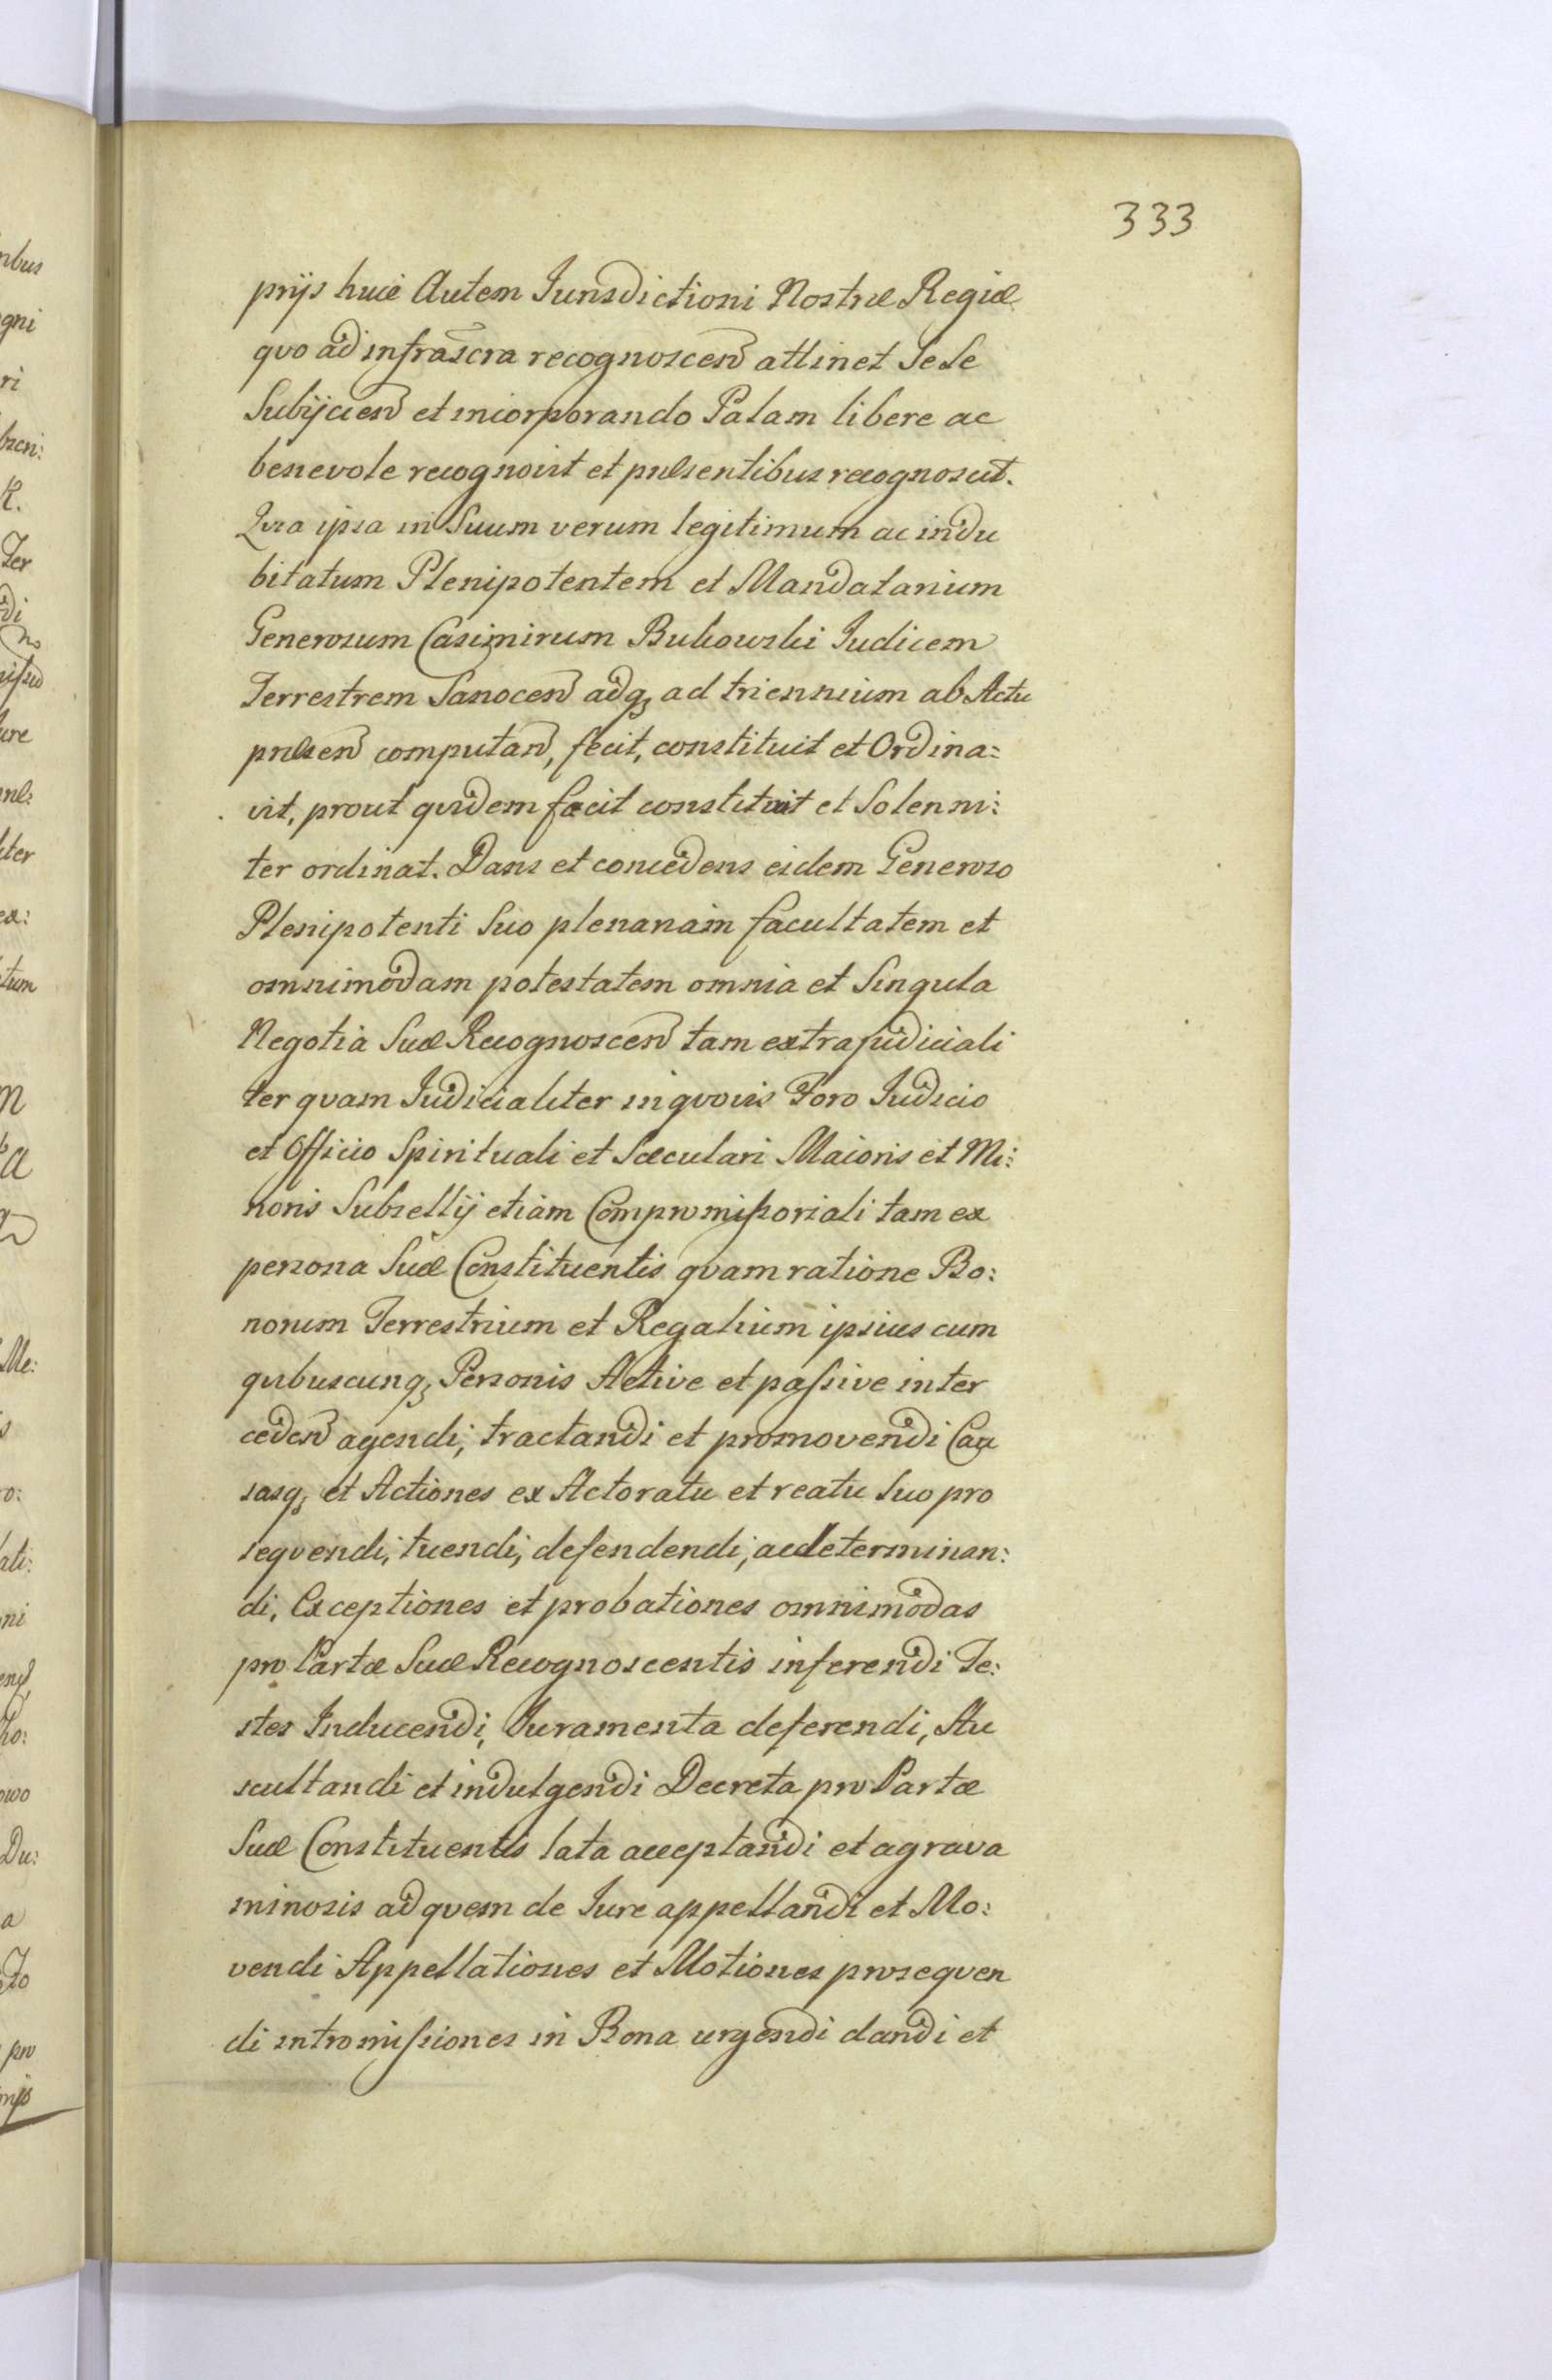 333
prijs huic Autem Jurisdictioni Nostræ Regiæ
quo ad infrascra recognoscen attinet Sese
Subijcien et incorporando Palam libere ac
benevole recognovit et præsentibus recognoscit.
Quia ipsa in Suum verum legitimum ac indu
bitatum Plenipotentem et Mandatarium
Generosum Casimirum Bukowski Judicem
Terrestrem Sanocen adq, ad triennium ab Actu
præsen computan, fecit, constituit et Ordina:
vit, prout quidem facit constituit et Solenni:
ter ordinat. Dans et concedens eidem Generoso
Plenipotenti Suo plenariam facultatem et
omnimodam potestatem omnia et Singula
Negotia Suæ Recognoscen tam extrajudiciali
ter quam Judicialiter inquovis Foro Judicio
et Officio Spirituali et Sæculari Maioris et Mi:
noris Subsellij etiam Compromissoriali tam ex
persona Suæ Constituentis quam ratione Bo:
norum Terrestrium et Regalium ipsius cum
quibuscunq, Personis Active et passive inter
ceden agendi, tractandi et promovendi Cau
sasq, et Actiones ex Actoratu et reatu Suo pro
sequendi, tuendi, defendendi, ac determinan:
di, Exceptiones et probationes omnimodas
pro Partæ Suæ Recognoscentis inferendi Te:
stes Inducendi, Juramenta deferendi, Au
scultandi et indulgendi Decreta pro Partæ
Suæ Constituentis lata acceptandi et agrava
minosis ad quem de Jure appellandi et Mo:
vendi Appellationes et Motiones prosequen
di intromissiones in Bona urgendi dandi et